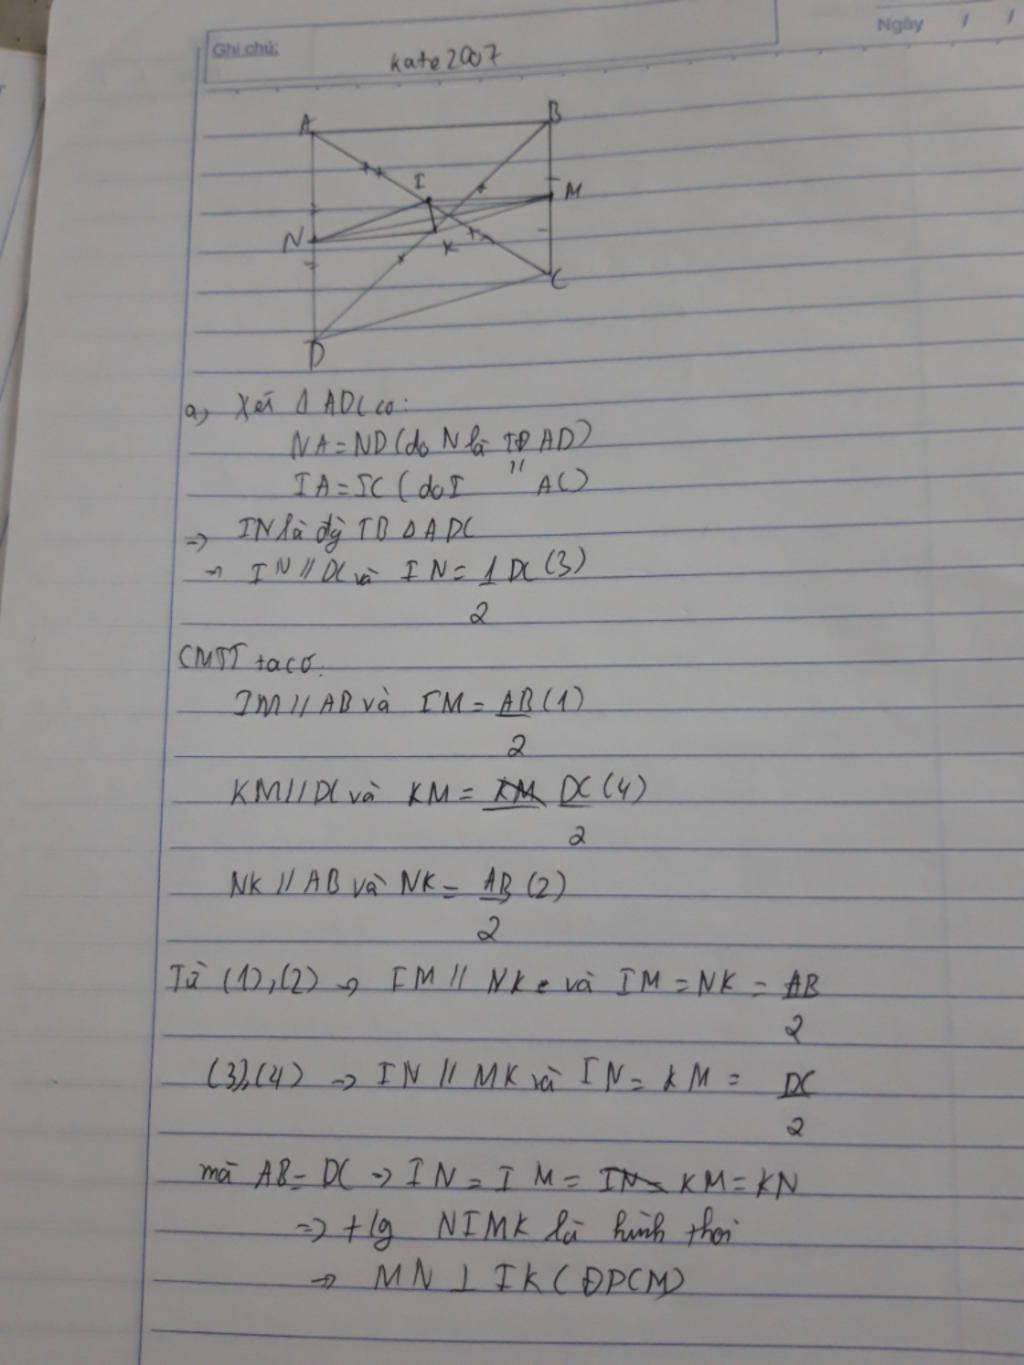 Ghi chú:
Ngày / /
kate2007
A
B
I
M
N
K
C
D
a, Xét Δ ADC có:
NA = ND (do N là TĐ AD)
IA = IC (do I " AC)
=> IN là đg TB Δ ADC
=> IN // DC và IN = 1 DC (3)
2
CMTT ta có.
IM // AB và IM = AB (1)
2
KM // DC và KM = KM DC (4)
2
NK // AB và NK = AB (2)
2
Từ (1), (2) => IM // NK và IM = NK = AB
2
(3), (4) => IN // MK và IN = KM = DC
2
mà AB = DC => IN = IM = IN = KM = KN
=> tg NIMK là hình thoi
=> MN ⊥ IK (ĐPCM)